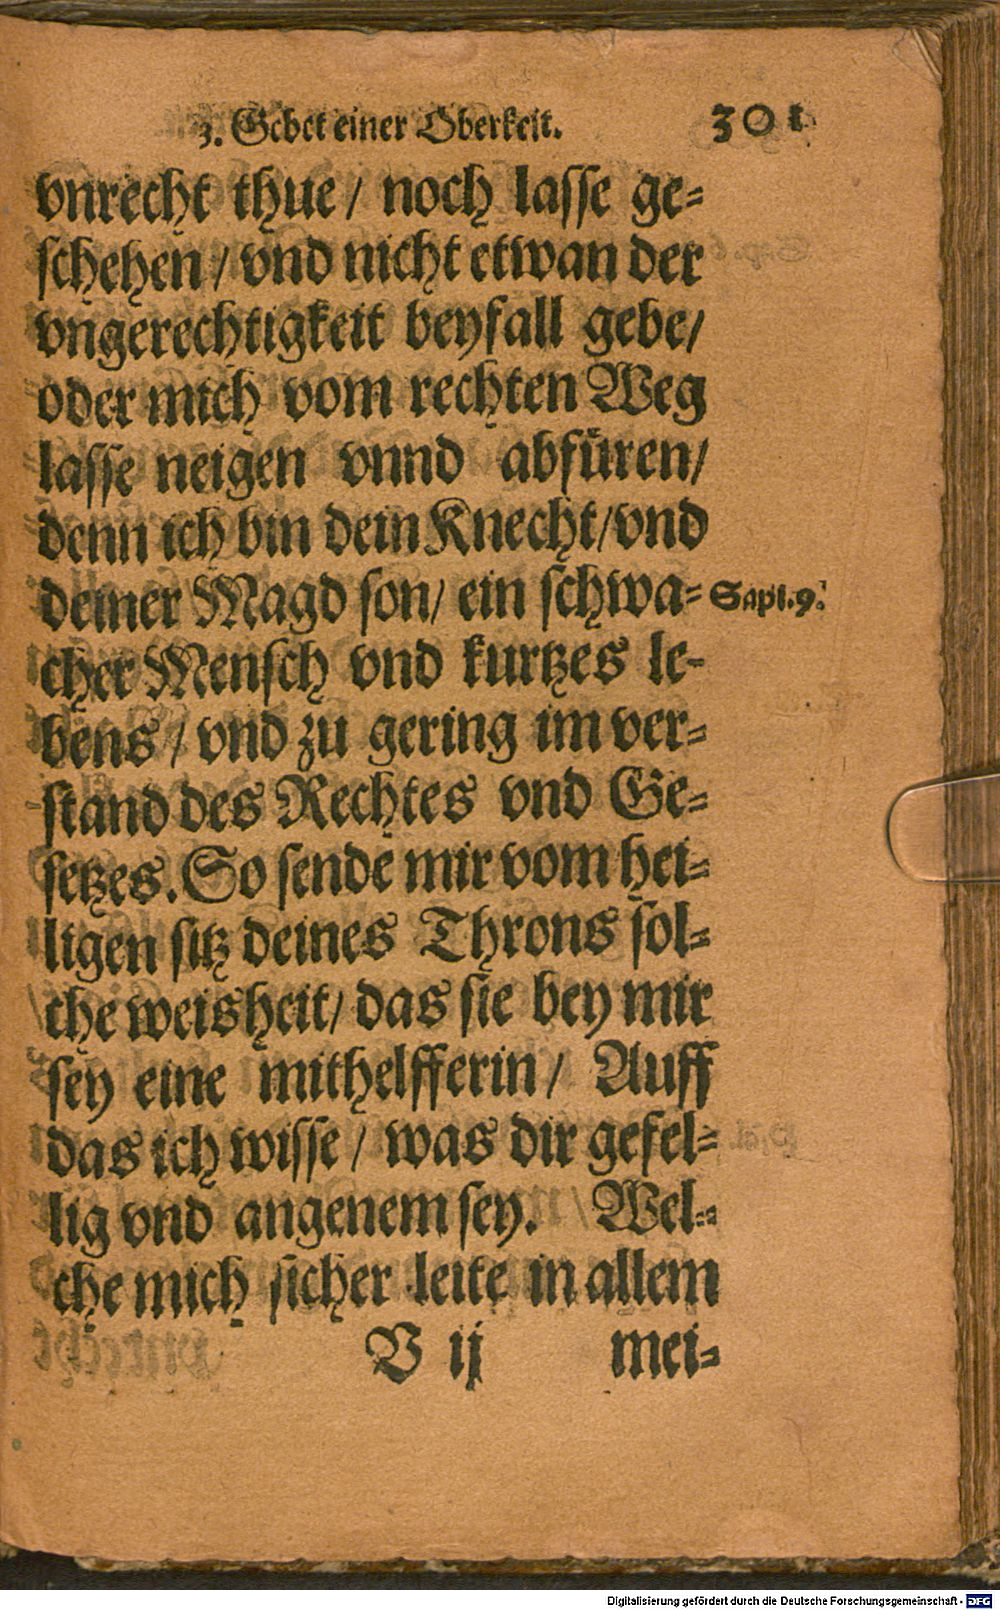 3. Gebet einer Oberkeit. 301
vnrecht thue / noch lasse ge=
schehen / vnd nicht etwan der
vngerechtigkeit beyfall gebe /
oder mich vom rechten Weg
lasse neigen vnnd abfüren /
denn ich bin dein Knecht / vnd
deiner Magd son / ein schwa= Sapi. 9.
cher Mensch vnd kurtzes le-
bens / vnd zu gering im ver=
stand des Rechtes vnd Ge=
setzes. So sende mir vom hei=
ligen sitz deines Throns sol=
che weisheit / das sie bey mir
sey eine mithelfferin / Auff
das ich wisse / was dir gefel=
lig vnd angenem sey. Wel=
che mich sicher leite in allem
V ij mei=
Digitalisierung gefördert durch die Deutsche Forschungsgemeinschaft - DFG